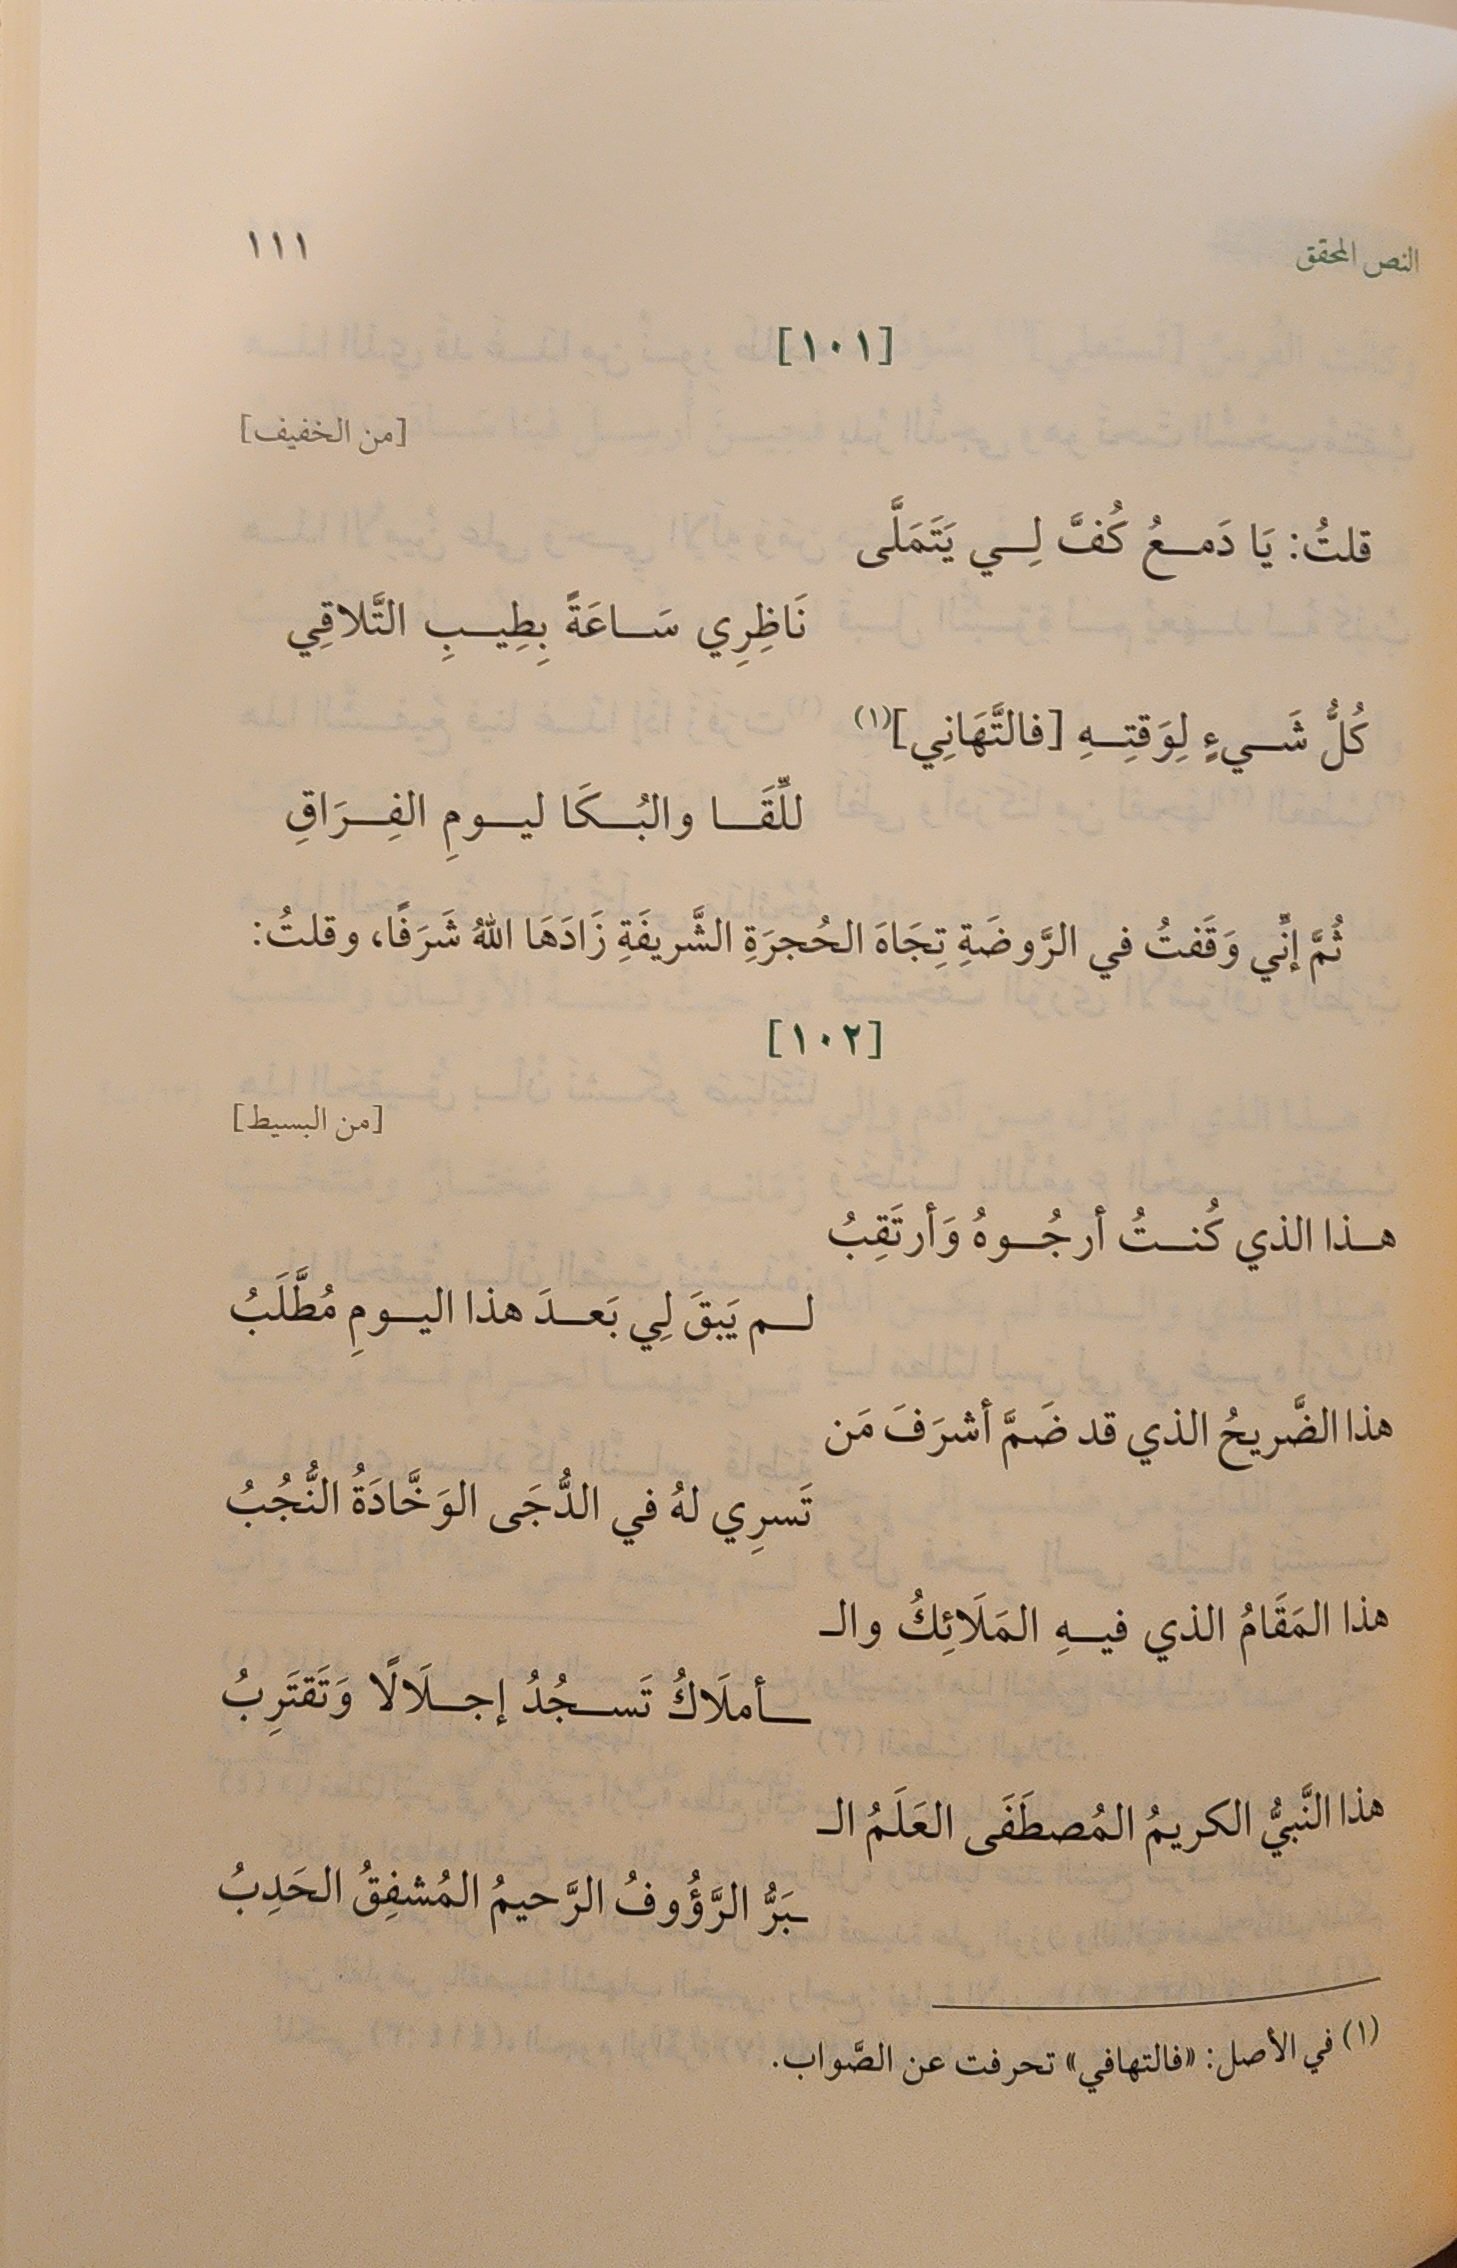 النص المحقق
١١١
[١٠١]
[من الخفيف]
قلتُ: يَا دَمـعُ كُفَّ لِـي يَتَمَلَّى
نَاظِرِي سَـاعَةً بِطِيـبِ التَّلاقِي
كُلُّ شَـيءٍ لِوَقتِـهِ [فالتَّهَانِي](١)
للِّقَـا والبُـكَا ليـومِ الفِـرَاقِ
ثُمَّ إنِّي وَقَفتُ في الرَّوضَةِ تِجَاهَ الحُجرَةِ الشَّريفَةِ زَادَهَا اللهُ شَرَفًا، وقلتُ:
[١٠٢]
[من البسيط]
هـذا الذي كُنـتُ أرجُـوهُ وَأرتَقِبُ
لـم يَبقَ لِي بَعـدَ هذا اليـومِ مُطَّلَبُ
هذا الضَّريحُ الذي قد ضَمَّ أشرَفَ مَن
تَسرِي لهُ في الدُّجَى الوَخَّادَةُ النُّجُبُ
هذا المَقَامُ الذي فيـهِ المَلَائِكُ والـ
ـأملَاكُ تَسـجُدُ إجـلَالًا وَتَقتَرِبُ
هذا النَّبيُّ الكريمُ المُصطَفَى العَلَمُ الـ
ـبَرُّ الرَّؤُوفُ الرَّحيمُ المُشفِقُ الحَدِبُ
(١) في الأصل: «فالتهافي» تحرفت عن الصَّواب.